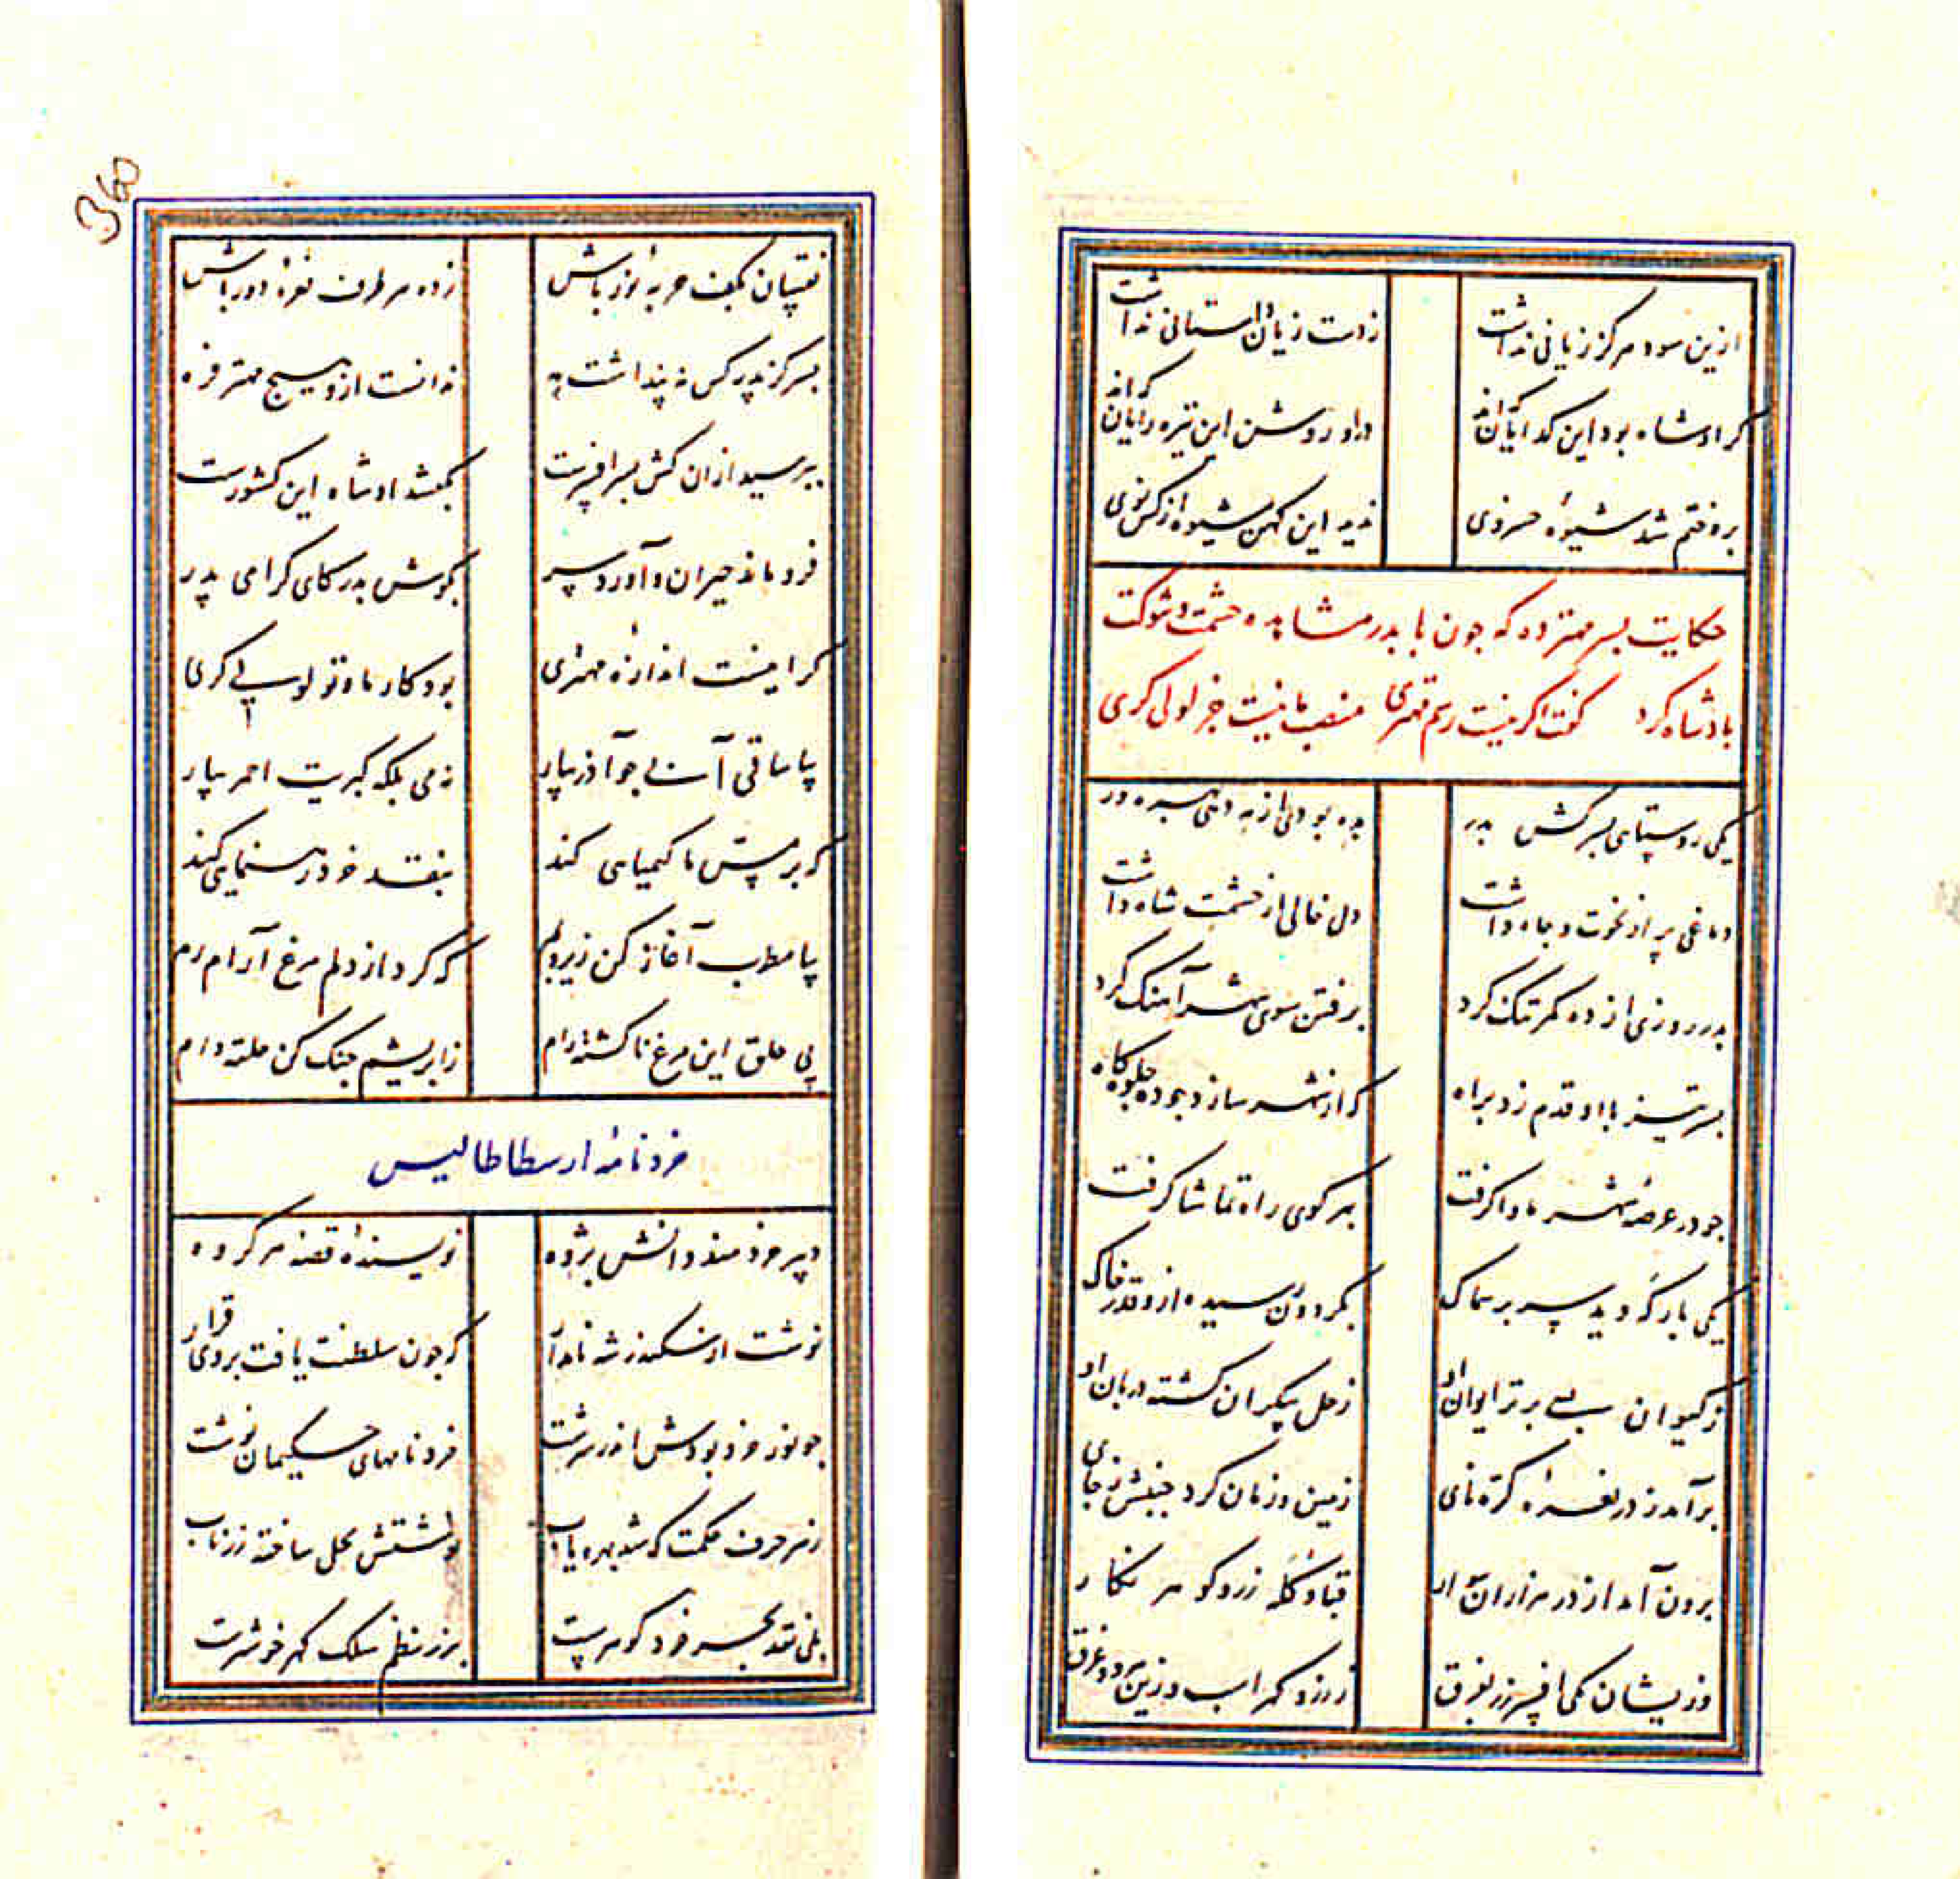 ازین سود هرگز زیانی نداشت
ز دست زیان داستانی نداشت
گر او شاه بود این گدایان که‌اند
در او روشن این تیره رایان که‌اند
برو ختم شد شیوهٔ خسروی
ندید این کهن شیوه از کس نوی
حکایت پسر مهتر ده که چون با پدر مشاهده حشمت و شوکت
پادشاه کرد گفت اگر اینست رسم مهتری منصب ما نیست جز لولی گری
یکی روستایی پسر کش پدر
بده بود از به دهی بهره ور
دماغی پر از نخوت و جاه داشت
دل خالی از حشمت شاه داشت
پدر روزی از ده کمر تنگ کرد
برفتن سوی شهر آهنگ کرد
پسر نیز با او قدم زد براه
که از شهر سازد بخود جلوه‌گاه
چو در عرصهٔ شهر ماوا گرفت
بهر کوی راه تماشا گرفت
یکی بارگه دید سر بر سماک
بگردون رسیده ازو قدر خاک
ز کیوان بسی برتر ایوان او
زحل پیکران گشته دربان او
برآمد ز در نعرهٔ کره نای
زمین و زمان کرد جنبش ز جای
برون آمد از در هزاران سوار
قبا و کله زرد گوهر نگار
وزیشان یکی افسر زر بفرق
ز زر و گهر اسب و زین هر دو غرق
نقیبان بکف حربه نور پاش
زده هر طرف نعرهٔ دور باش
پسر کز پدر کس نه پنداشت به
ندانست ازو هیچ مهتر فره
بپرسید ازان کش بسر افسرست
بگفتند او شاه این کشورست
فرو ماند حیران و آورد سر
بگوش پدر کای گرامی پدر
گر اینست اندازهٔ مهتری
بود کار ما و تو لولی گری
بیا ساقی آن می چو آذر بیار
نه می بلکه کبریت احمر بیار
که بر مس ما کیمیایی کند
بنقد خود رهنمایی کند
بیا مطرب آغاز کن زیر و بم
که کرد از دلم مرغ آرام رم
پی حلق این مرغ ناگشته رام
ز ابریشم چنگ کن حلقه دام
خرد نامهٔ ارسطاطالیس
دبیر خردمند دانش پژوه
نویسندهٔ قصهٔ هر گروه
نوشت از سکندر شه نامدار
که چون سلطنت یافت بر وی قرار
چو نور خرد بودش اندر سرشت
خرد نامهای حکیمان نوشت
ز هر حرف حکمت که شد بهره یاب
نوشتش بحل ساخته زر ناب
بلی نقد بحر خرد گوهرست
بزر نظم سلک گهر خوشترست
360